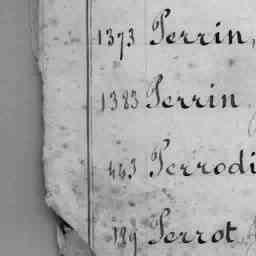 1373 Perrin,
1383 Perrin
443 Perrodi
189 Perrot